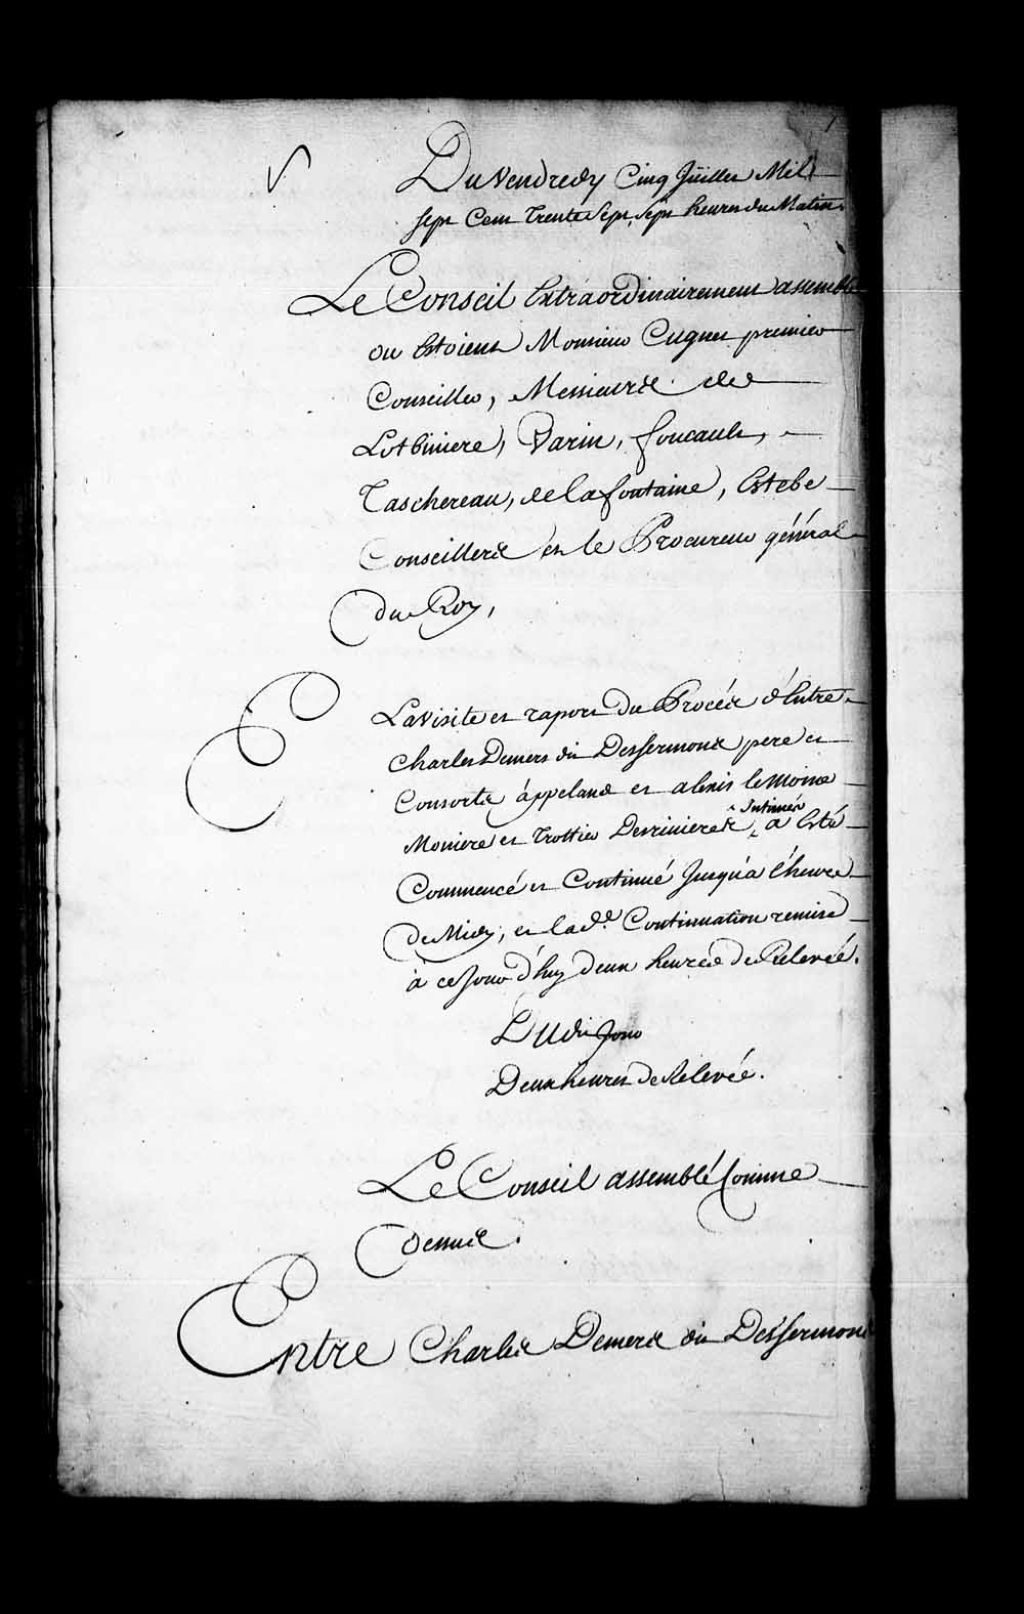 Du Vendredy Cinq Juillet Mil
sept Cent Trente Sept, Sept heures du Matin
Le Conseil Extraordinairement assemblé
ou Estoient Monsieur Cugnet premier
Conseiller, Messieurs de
Lotbiniere, Varin, foucault,
Taschereau, de la fontaine, Estebe
Conseillers et le Procureur général
du Roy,
La Visite et raport du Procés d'Entre
Charles Demers dit Dessermons pere et
Consorts áppelans et alexis le Moine
Moniere et Trottier Desrivieres ^ Intimés, a Esté
Commencé et Continué Jusqu'a L'heure
de Midy, et lad.e Continuation remise
à ce Jour d'huy deux heures de Relevée.
Dudit Jour
Deux heures de Relevée.
Le Conseil assemblé Comme
dessus.
Entre Charles Demers dit Dessermons